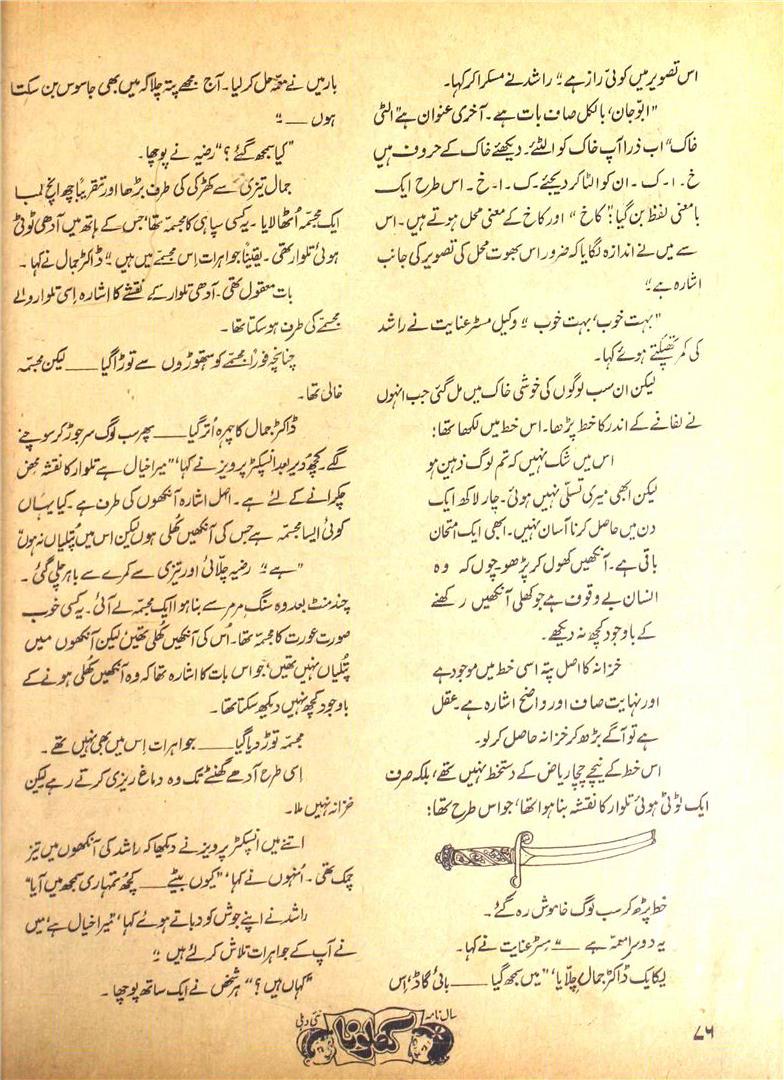 اس تصویر میں کوئی راز ہے“۔ راشد نے مسکرا کر کہا۔
”ابّو جان، بالکل صاف بات ہے۔ آخری عنوان ہے ”الٹی
خاک“ اب ذرا آپ خاک کو الٹیے۔ دیکھئے خاک کے حروف ہیں
خ۔ ا۔ ک۔ ان کو الٹا کر دیجئے۔ ک۔ ا۔ خ۔ اس طرح ایک
بامعنی لفظ بن گیا: ”کاخ“ اور کاخ کے معنی محل ہوتے ہیں۔ اس
سے میں نے اندازہ لگایا کہ ضرور اس بھوت محل کی تصویر کی جانب
اشارہ ہے“۔
”بہت خوب، بہت خوب“۔ وکیل مسٹر عنایت نے راشد
کی کمر تھپکتے ہوئے کہا۔
لیکن ان سب لوگوں کی خوشی خاک میں مل گئی جب انہوں
نے لفافے کے اندر کا خط پڑھا۔ اس خط میں لکھا تھا:
اس میں شک نہیں کہ تم لوگ ذہین ہو
لیکن ابھی میری تسلّی نہیں ہوئی۔ چار لاکھ ایک
دن میں حاصل کرنا آسان نہیں۔ ابھی ایک امتحان
باقی ہے۔ آنکھیں کھول کر پڑھو۔ چوں کہ وہ
انسان بے وقوف ہے جو کھلی آنکھیں رکھنے
کے باوجود کچھ نہ دیکھے۔
خزانہ کا اصل پتہ اسی خط میں موجود ہے
اور نہایت صاف اور واضح اشارہ ہے۔ عقل
ہے تو آگے بڑھ کر خزانہ حاصل کر لو۔
اس خط کے نیچے چچا ریاض کے دستخط نہیں تھے، بلکہ صرف
ایک ٹوٹی ہوئی تلوار کا نقشہ بنا ہوا تھا، جو اس طرح تھا:
خط پڑھ کر سب لوگ خاموش رہ گئے۔
یہ دوسرا معمّہ ہے ــــ“۔ مسٹر عنایت نے کہا۔
یکایک ڈاکٹر جمال چلّایا، ”میں سمجھ گیا ــــ بائی گاڈ، اس
بار میں نے معمّہ حل کر لیا۔ آج مجھے پتہ چلا کہ میں بھی جاسوس بن سکتا
ہوں ــــ“۔
”کیا سمجھ گئے؟“ رضیہ نے پوچھا۔
جمال تیزی سے کھڑکی کی طرف بڑھا اور تقریباً چھ انچ لمبا
ایک مجسّمہ اُٹھا لایا۔ یہ کسی سپاہی کا مجسّمہ تھا، جس کے ہاتھ میں آدھی ٹوٹی
ہوئی تلوار تھی۔ یقیناً جواہرات اِس مجسّمے میں ہیں“۔ ڈاکٹر جمال نے کہا۔
بات معقول تھی۔ آدھی تلوار کے نقشے کا اشارہ اِسی تلوار والے
مجسّمے کی طرف ہو سکتا تھا۔
چنانچہ فوراً مجسّمے کو ہتھوڑوں سے توڑا گیا ــــ لیکن مجسّمہ
خالی تھا۔
ڈاکٹر جمال کا چہرہ اُتر گیا ــــ پھر سب لوگ سر جوڑ کر سوچنے
لگے۔ کچھ دیر بعد انسپکٹر پرویز نے کہا، ”میرا خیال ہے تلوار کا نقشہ محض
چکرانے کے لئے ہے۔ اصل اشارہ آنکھوں کی طرف ہے۔ کیا یہاں
کوئی ایسا مجسّمہ ہے جس کی آنکھیں کھلی ہوں لیکن اس میں پُتلیاں نہ ہوں“
”ہے“۔ رضیہ چلّائی اور تیزی سے کمرے سے باہر چلی گئی۔
چند منٹ بعد وہ سنگِ مرمر سے بنا ہوا ایک مجسّمہ لے آئی۔ یہ کسی خوب
صورت عورت کا مجسّمہ تھا۔ اُس کی آنکھیں کھلی تھیں لیکن آنکھوں میں
پُتلیاں نہیں تھیں، جو اس بات کا اشارہ تھا کہ وہ آنکھیں کھلی ہونے کے
باوجود کچھ نہیں دیکھ سکتا تھا۔
مجسّمہ توڑ دیا گیا ــــ جواہرات اِس میں بھی نہیں تھے۔
اِسی طرح آدھے گھنٹے تک وہ دماغ ریزی کرتے رہے لیکن
خزانہ نہیں ملا۔
اتنے میں انسپکٹر پرویز نے دیکھا کہ راشد کی آنکھوں میں تیز
چمک تھی۔ اُنہوں نے کہا، ”کیوں بیٹے ــــ کچھ تمہاری سمجھ میں آیا“
راشد نے اپنے جوش کو دباتے ہوئے کہا، ”میرا خیال ہے، میں
نے آپ کے جواہرات تلاش کر لئے ہیں“۔
”کہاں ہیں؟“ ہر شخص نے ایک ساتھ پوچھا۔
سالنامہ کھلونا نئی دہلی
۷۶